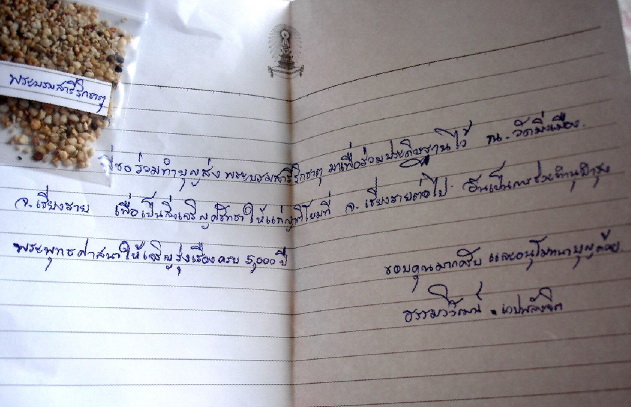 พระบรมสารีริกธาตุ
ร่วมทำบุญส่ง พระบรมสารีริกธาตุ มาเพื่อร่วมประดิษฐานไว้ ณ. วัดมิ่งเมือง.
จ. เชียงราย เพื่อเป็นสิ่งเจริญศรัทธา ให้แก่ญาติโยมที่ จ. เชียงรายต่อไป. อันเป็นการช่วยทำนุบำรุง
พระพุทธศาสนา ให้เจริญรุ่งเรืองครบ 5,000 ปี
ขอบคุณมากครับ และอนุโมทนาบุญด้วย
ธรรมวิวัฒน์